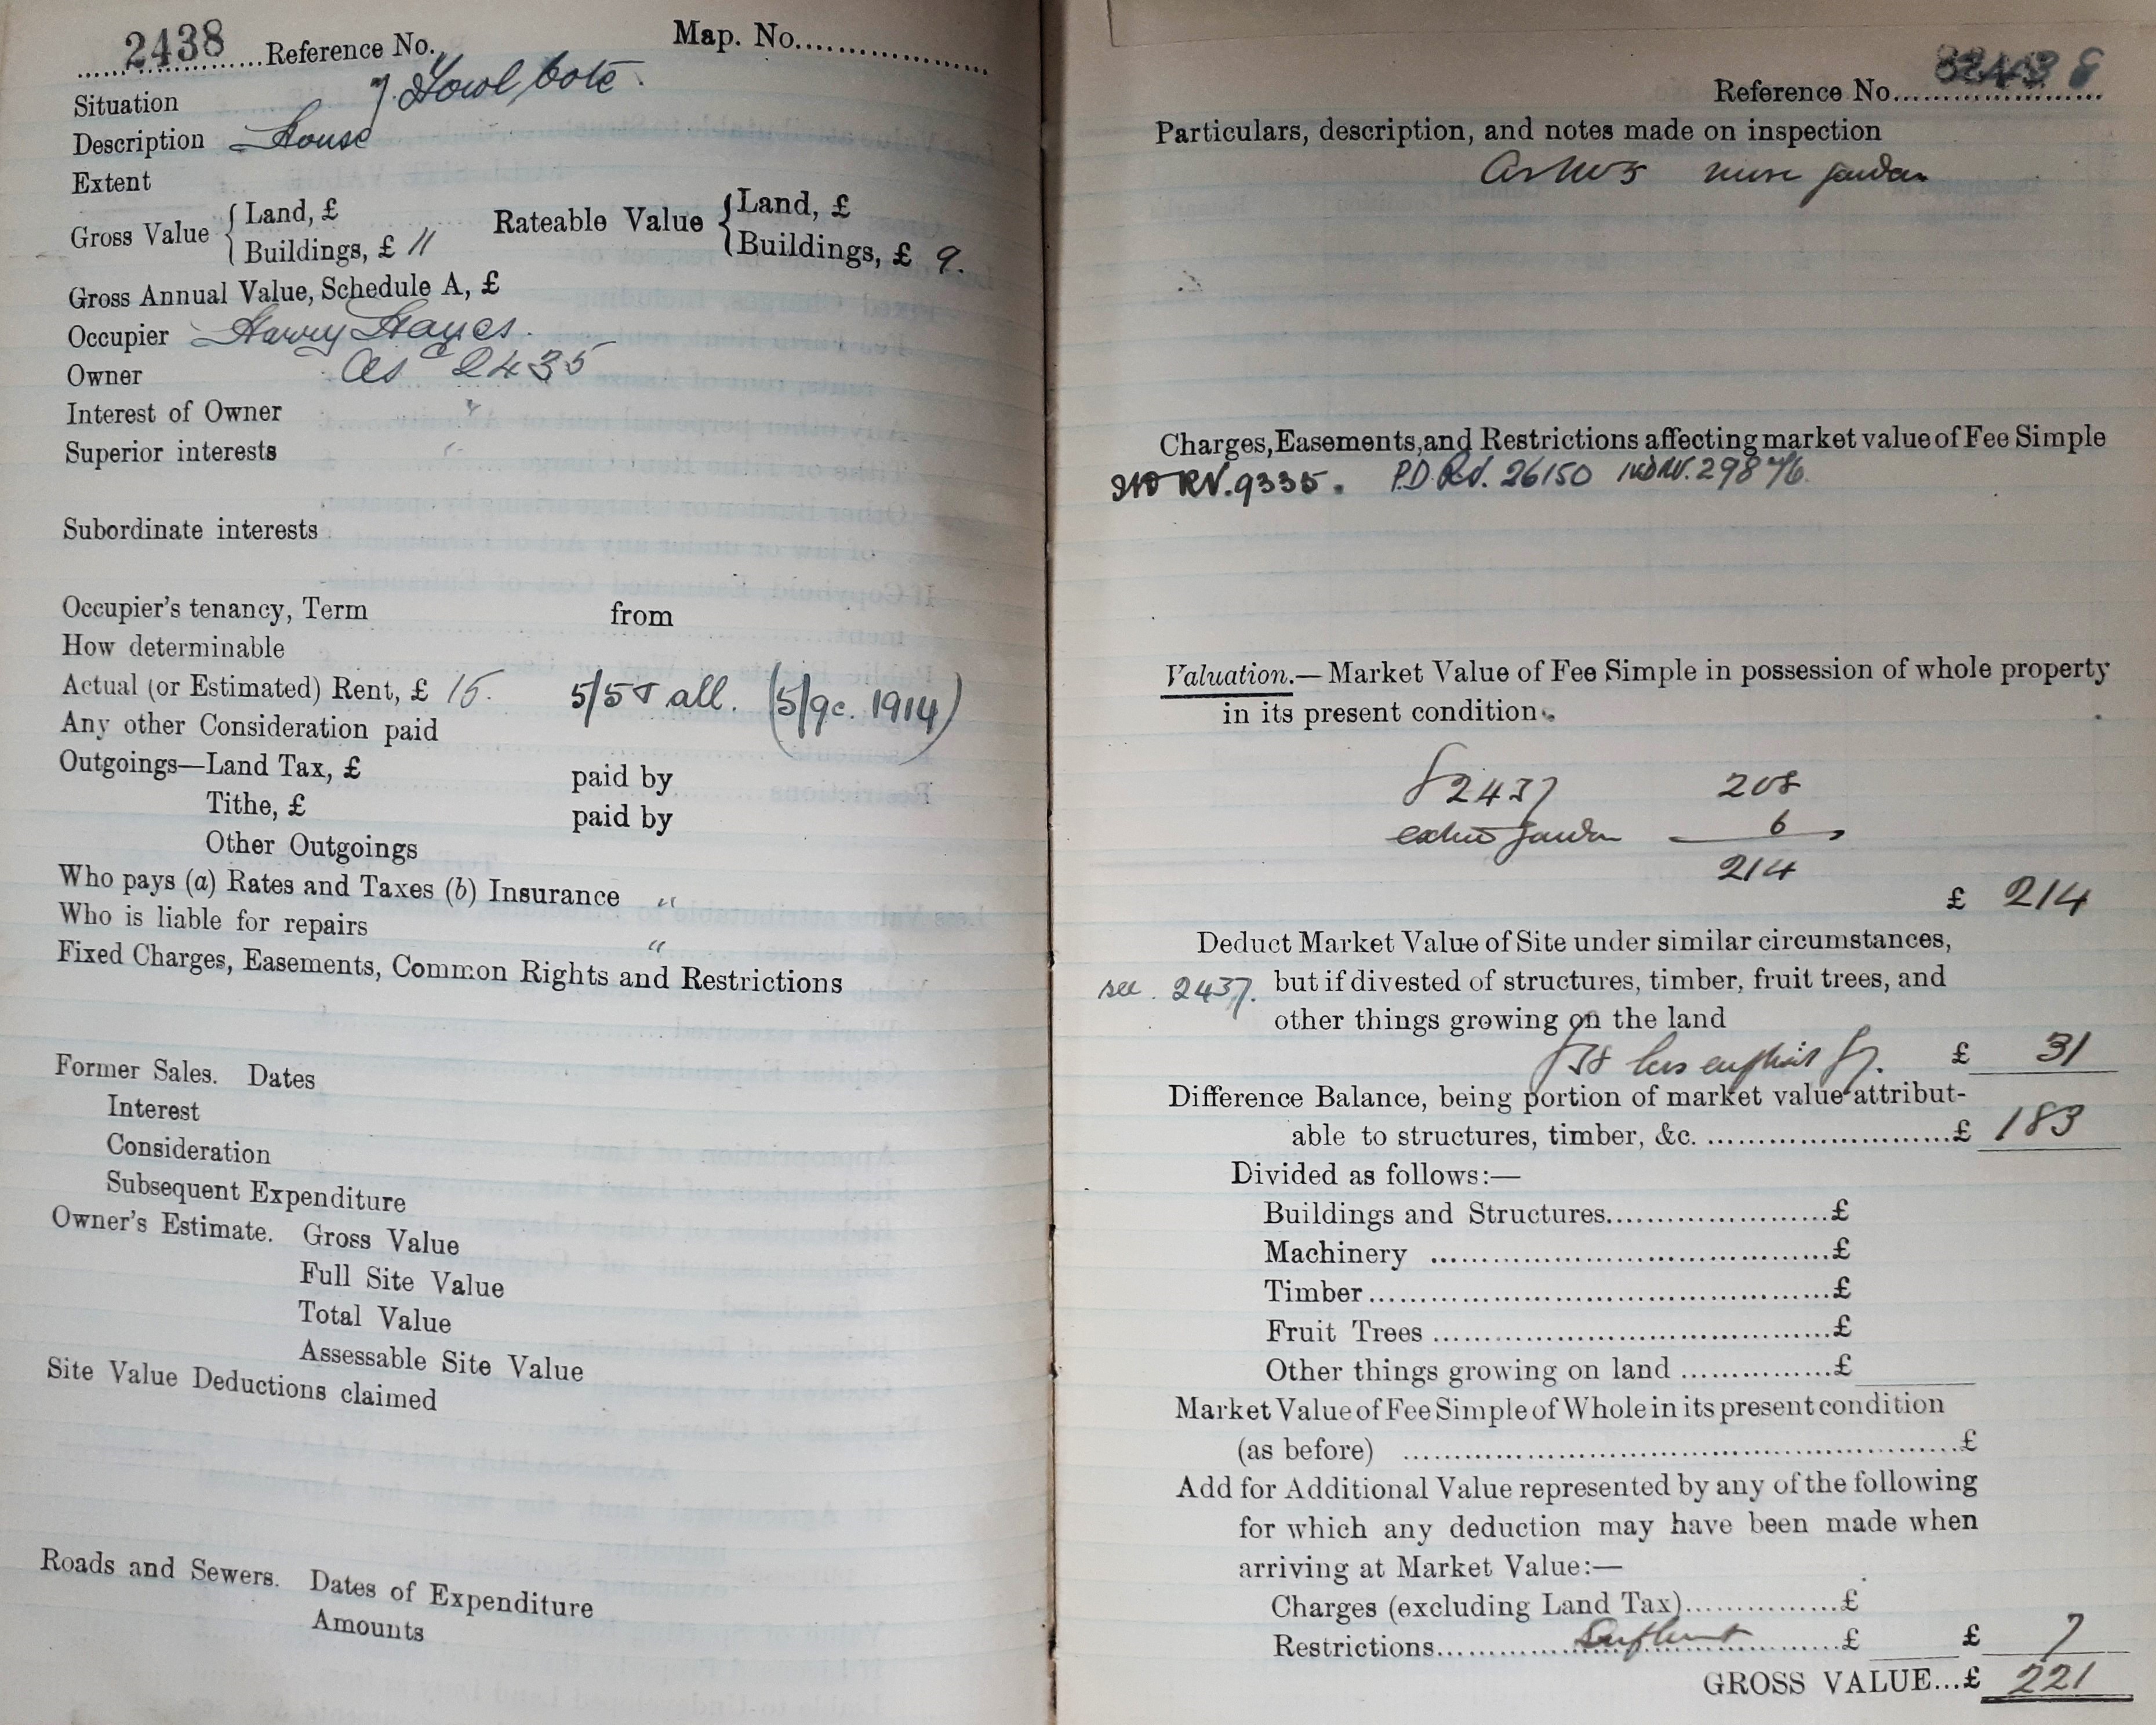 2438 Reference No. Map. No.
Situation 7. Fowl cote.
Description House
Extent
Gross Value { Land, £ Rateable Value { Land, £
Buildings, £ 11 Buildings, £ 9.
Gross Annual Value, Schedule A, £
Occupier Harry Hayes.
Owner As 2435
Interest of Owner "
Superior interests "
Subordinate interests
Occupier's tenancy, Term from
How determinable
Actual (or Estimated) Rent, £ 15. 5/5 & all. (5/9c. 1914)
Any other Consideration paid
Outgoings—Land Tax, £ paid by
Tithe, £ paid by
Other Outgoings
Who pays (a) Rates and Taxes (b) Insurance "
Who is liable for repairs "
Fixed Charges, Easements, Common Rights and Restrictions
Former Sales. Dates
Interest
Consideration
Subsequent Expenditure
Owner's Estimate. Gross Value
Full Site Value
Total Value
Assessable Site Value
Site Value Deductions claimed
Roads and Sewers. Dates of Expenditure
Amounts
Reference No. 8
Particulars, description, and notes made on inspection
more garden
Charges, Easements, and Restrictions affecting market value of Fee Simple
RV. 9335. P.D. Rd. 26150
Valuation.—Market Value of Fee Simple in possession of whole property
in its present condition.
2437 208
extra garden 6
214
£ 214
Deduct Market Value of Site under similar circumstances,
see 2437. but if divested of structures, timber, fruit trees, and
other things growing on the land
38 less £7. £ 31
Difference Balance, being portion of market value attribut-
able to structures, timber, &c. £ 183
Divided as follows:—
Buildings and Structures £
Machinery £
Timber £
Fruit Trees £
Other things growing on land £
Market Value of Fee Simple of Whole in its present condition
(as before) £
Add for Additional Value represented by any of the following
for which any deduction may have been made when
arriving at Market Value:—
Charges (excluding Land Tax) £
Restrictions £ £ 7
GROSS VALUE...£ 221